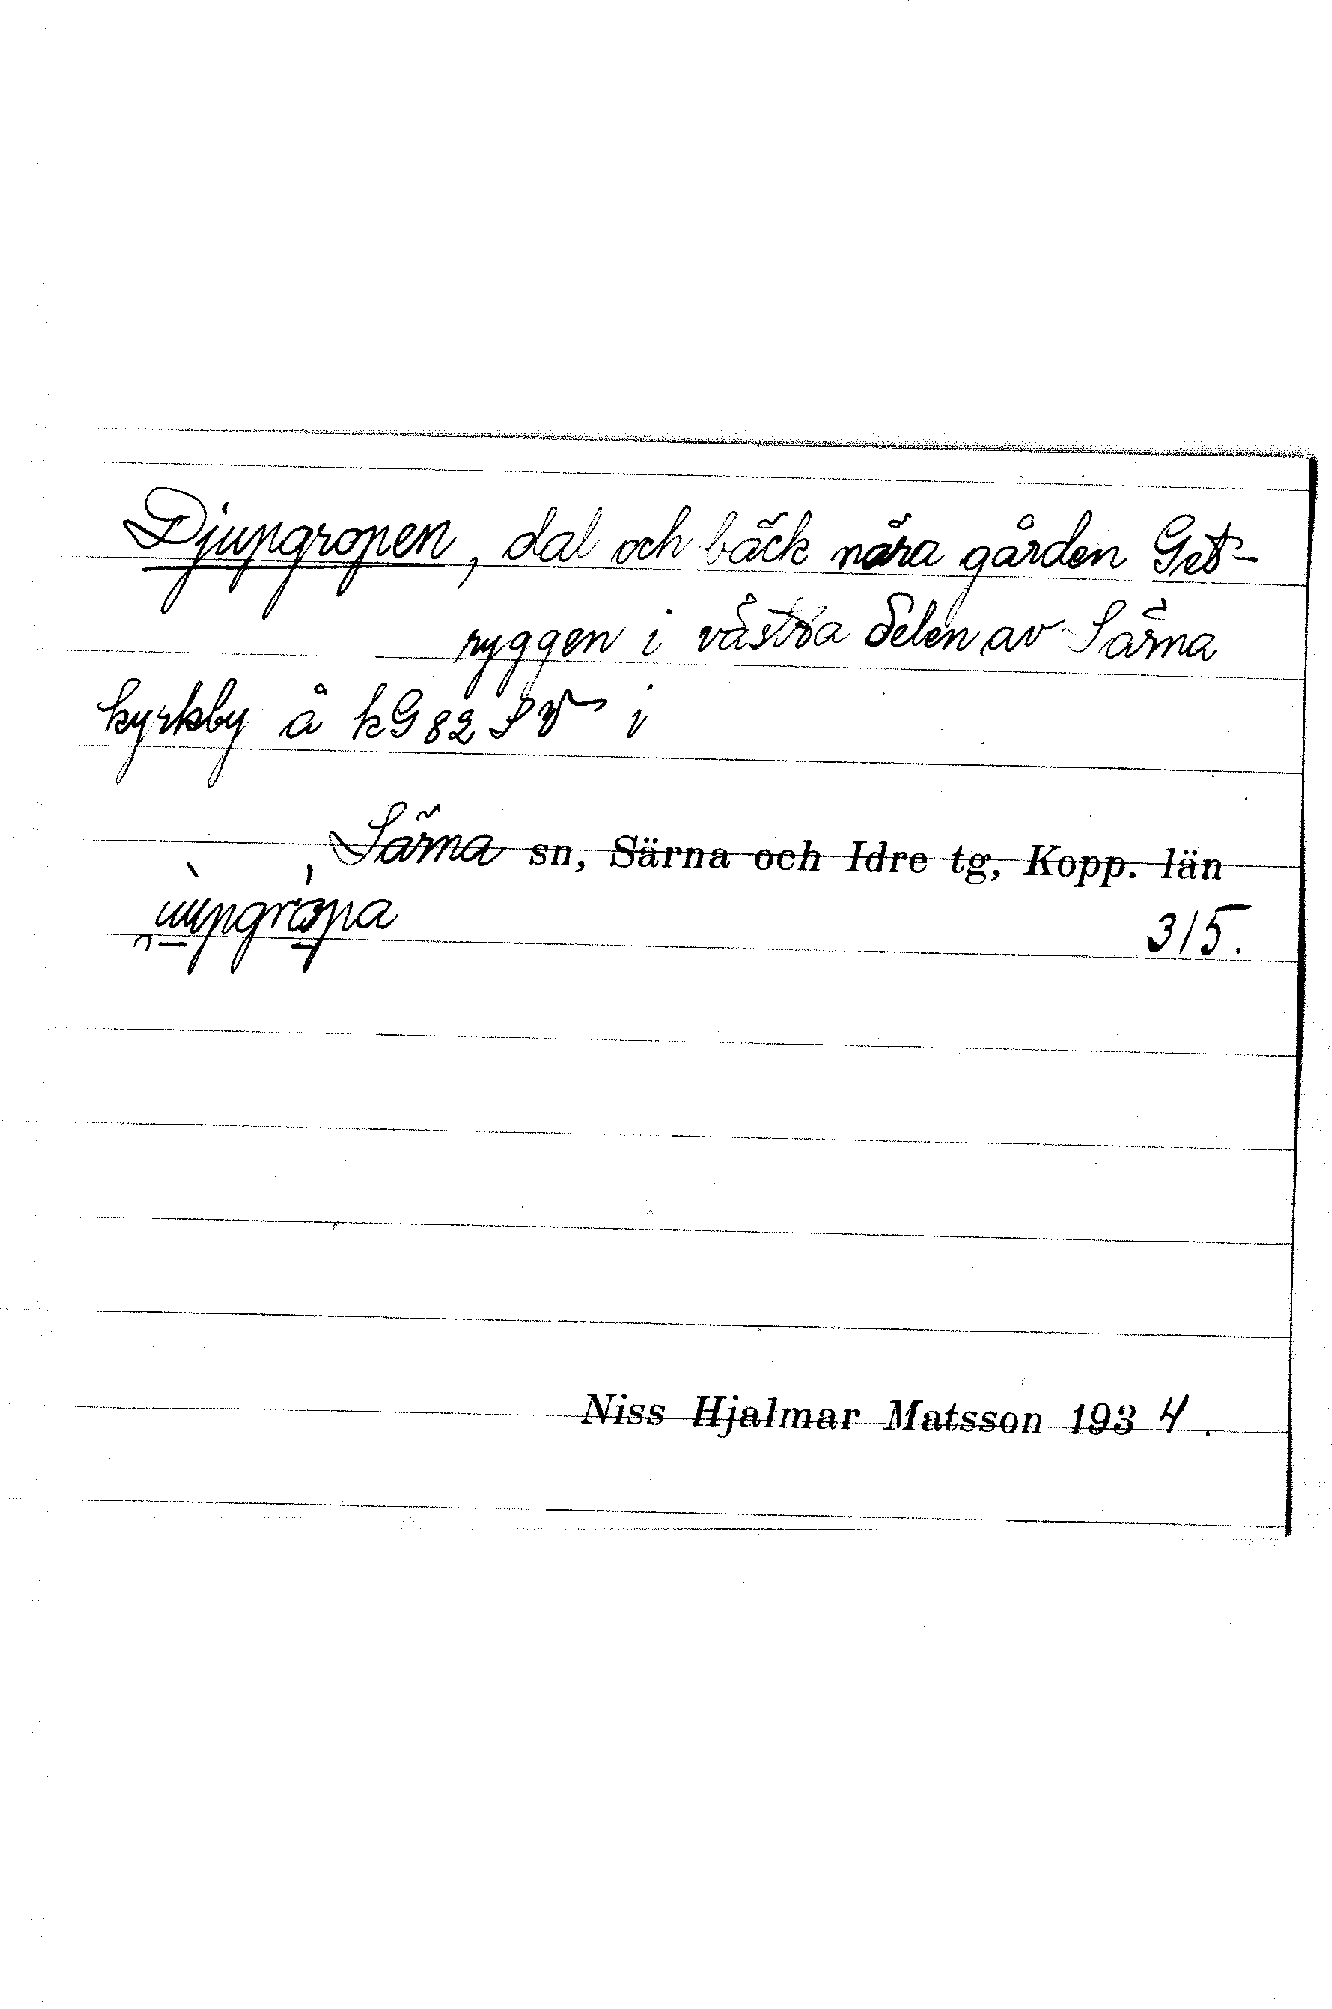 Djupgropen, dal och bäck nära gården Get-
ryggen i västra delen av Särna
kyrkby å kG 82 SV i
Särna sn, Särna och Idre tg, Kopp. län
315.
Niss Hjalmar Matsson 1934.